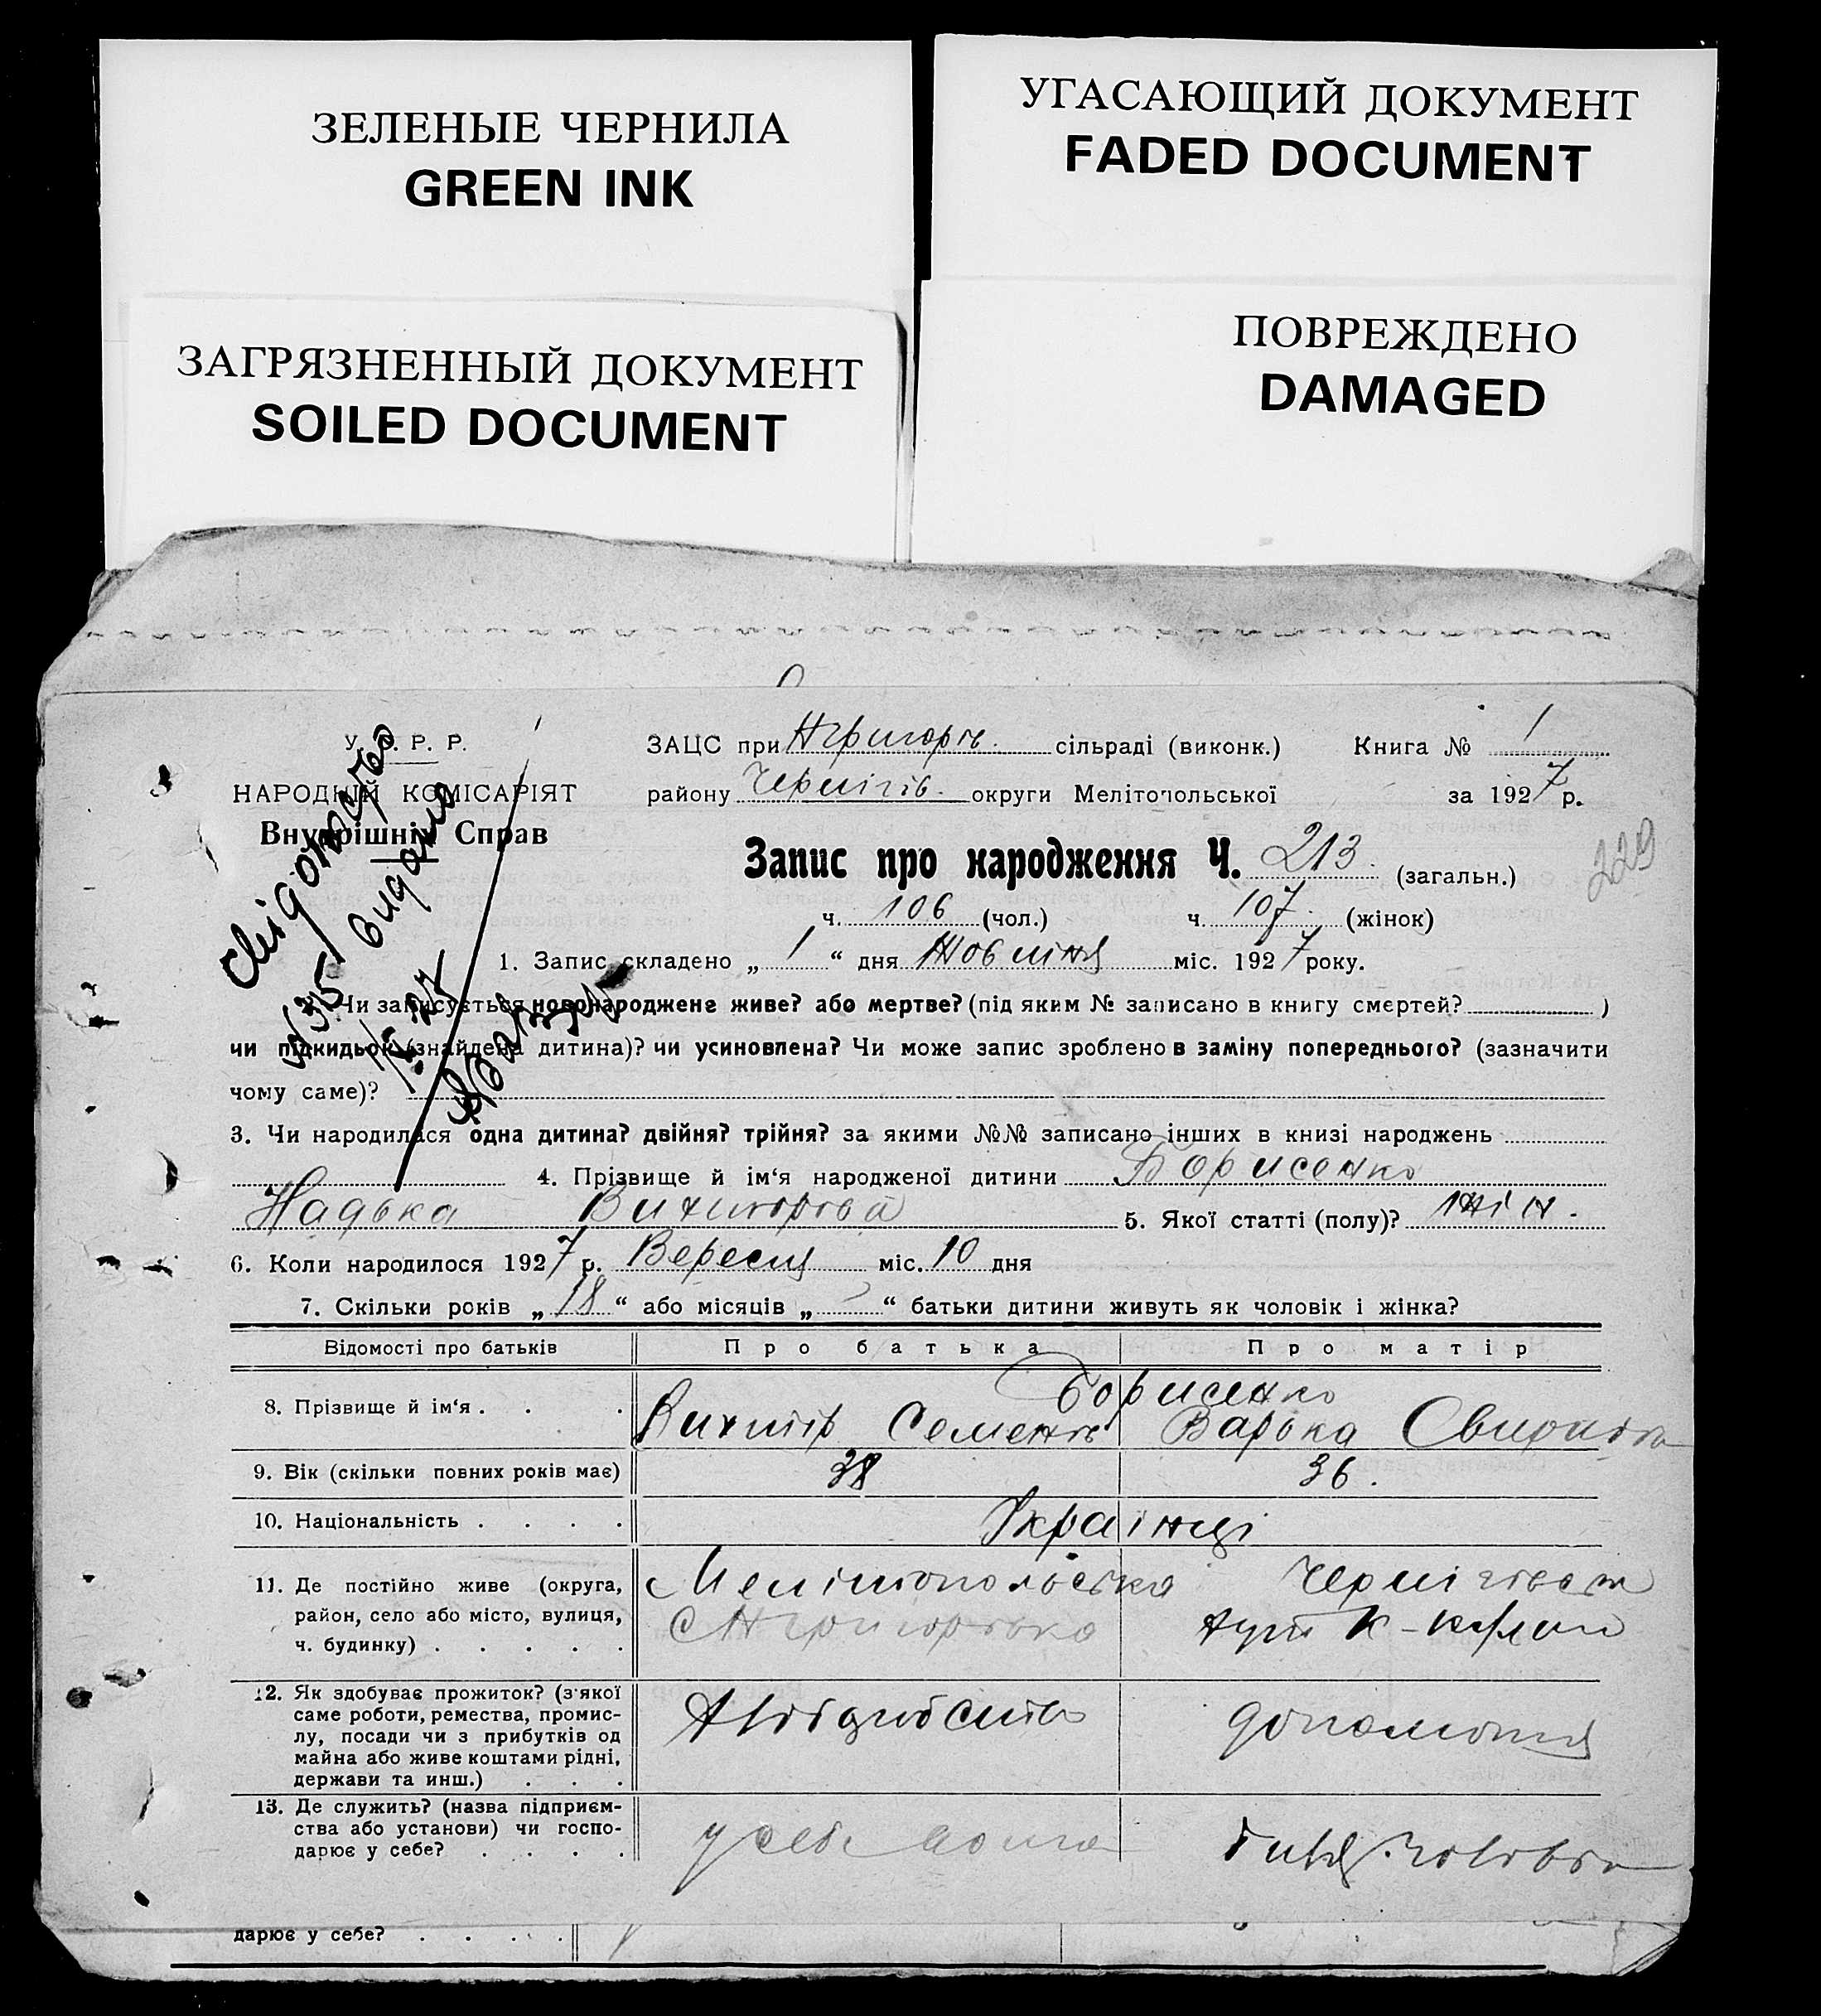 ЗЕЛЕНЫЕ ЧЕРНИЛА
GREEN INK
УГАСАЮЩИЙ ДОКУМЕНТ
FADED DOCUMENT
ЗАГРЯЗНЕННЫЙ ДОКУМЕНТ
SOILED DOCUMENT
ПОВРЕЖДЕНО
DAMAGED
У. Р. Р.
НАРОДНІЙ КОМІСАРІЯТ
Внутрішніх Справ
ЗАЦС при Нгригорів. сільраді (виконк.) Книга № 1
району Чернігів. округи Мелітопольської за 1927 р.
Запис про народження Ч. 213 (загальн.)
229
ч. 106 (чол.) ч. 107 (жінок)
видано
1. Запис складено „ 1 “ дня Жовтня міс. 1927 року.
Чи записується новонароджене живе? або мертве? (під яким № записано в книгу смертей? )
чи підкидьок (знайдена дитина)? чи усиновлена? Чи може запис зроблено в заміну попереднього? (зазначити
чому саме)?
3. Чи народилася одна дитина? двійня? трійня? за якими №№ записано інших в книзі народжень
4. Прізвище й ім‘я народженої дитини Борисенко
Надька Вихторова 5. Якої статті (полу)? жін.
6. Коли народилося 1927 р. Вересня міс. 10 дня
7. Скільки років „ 18 “ або місяців „ “ батьки дитини живуть як чоловік і жінка?
Відомості про батьків Про батька Про матір
8. Прізвище й ім‘я . . . Борисенко
Вихтір Семенів Варька Свиридова
9. Вік (скільки повних років має) 38 36.
10. Національність . . . . Українці
11. Де постійно живе (округа, район, село або місто, вулиця, ч. будинку) . . . . . Мелітопольська Чернігівськ
С Нгригорівка
12. Як здобуває прожиток? (з якої саме роботи, ремества, промислу, посади чи з прибутків од майна або живе коштами рідні, держави та инш.) . . . Хліборобств
13. Де служить? (назва підприємства або установи) чи господарює у себе? . . . . у себе дома
дарює у себе? . . . . .